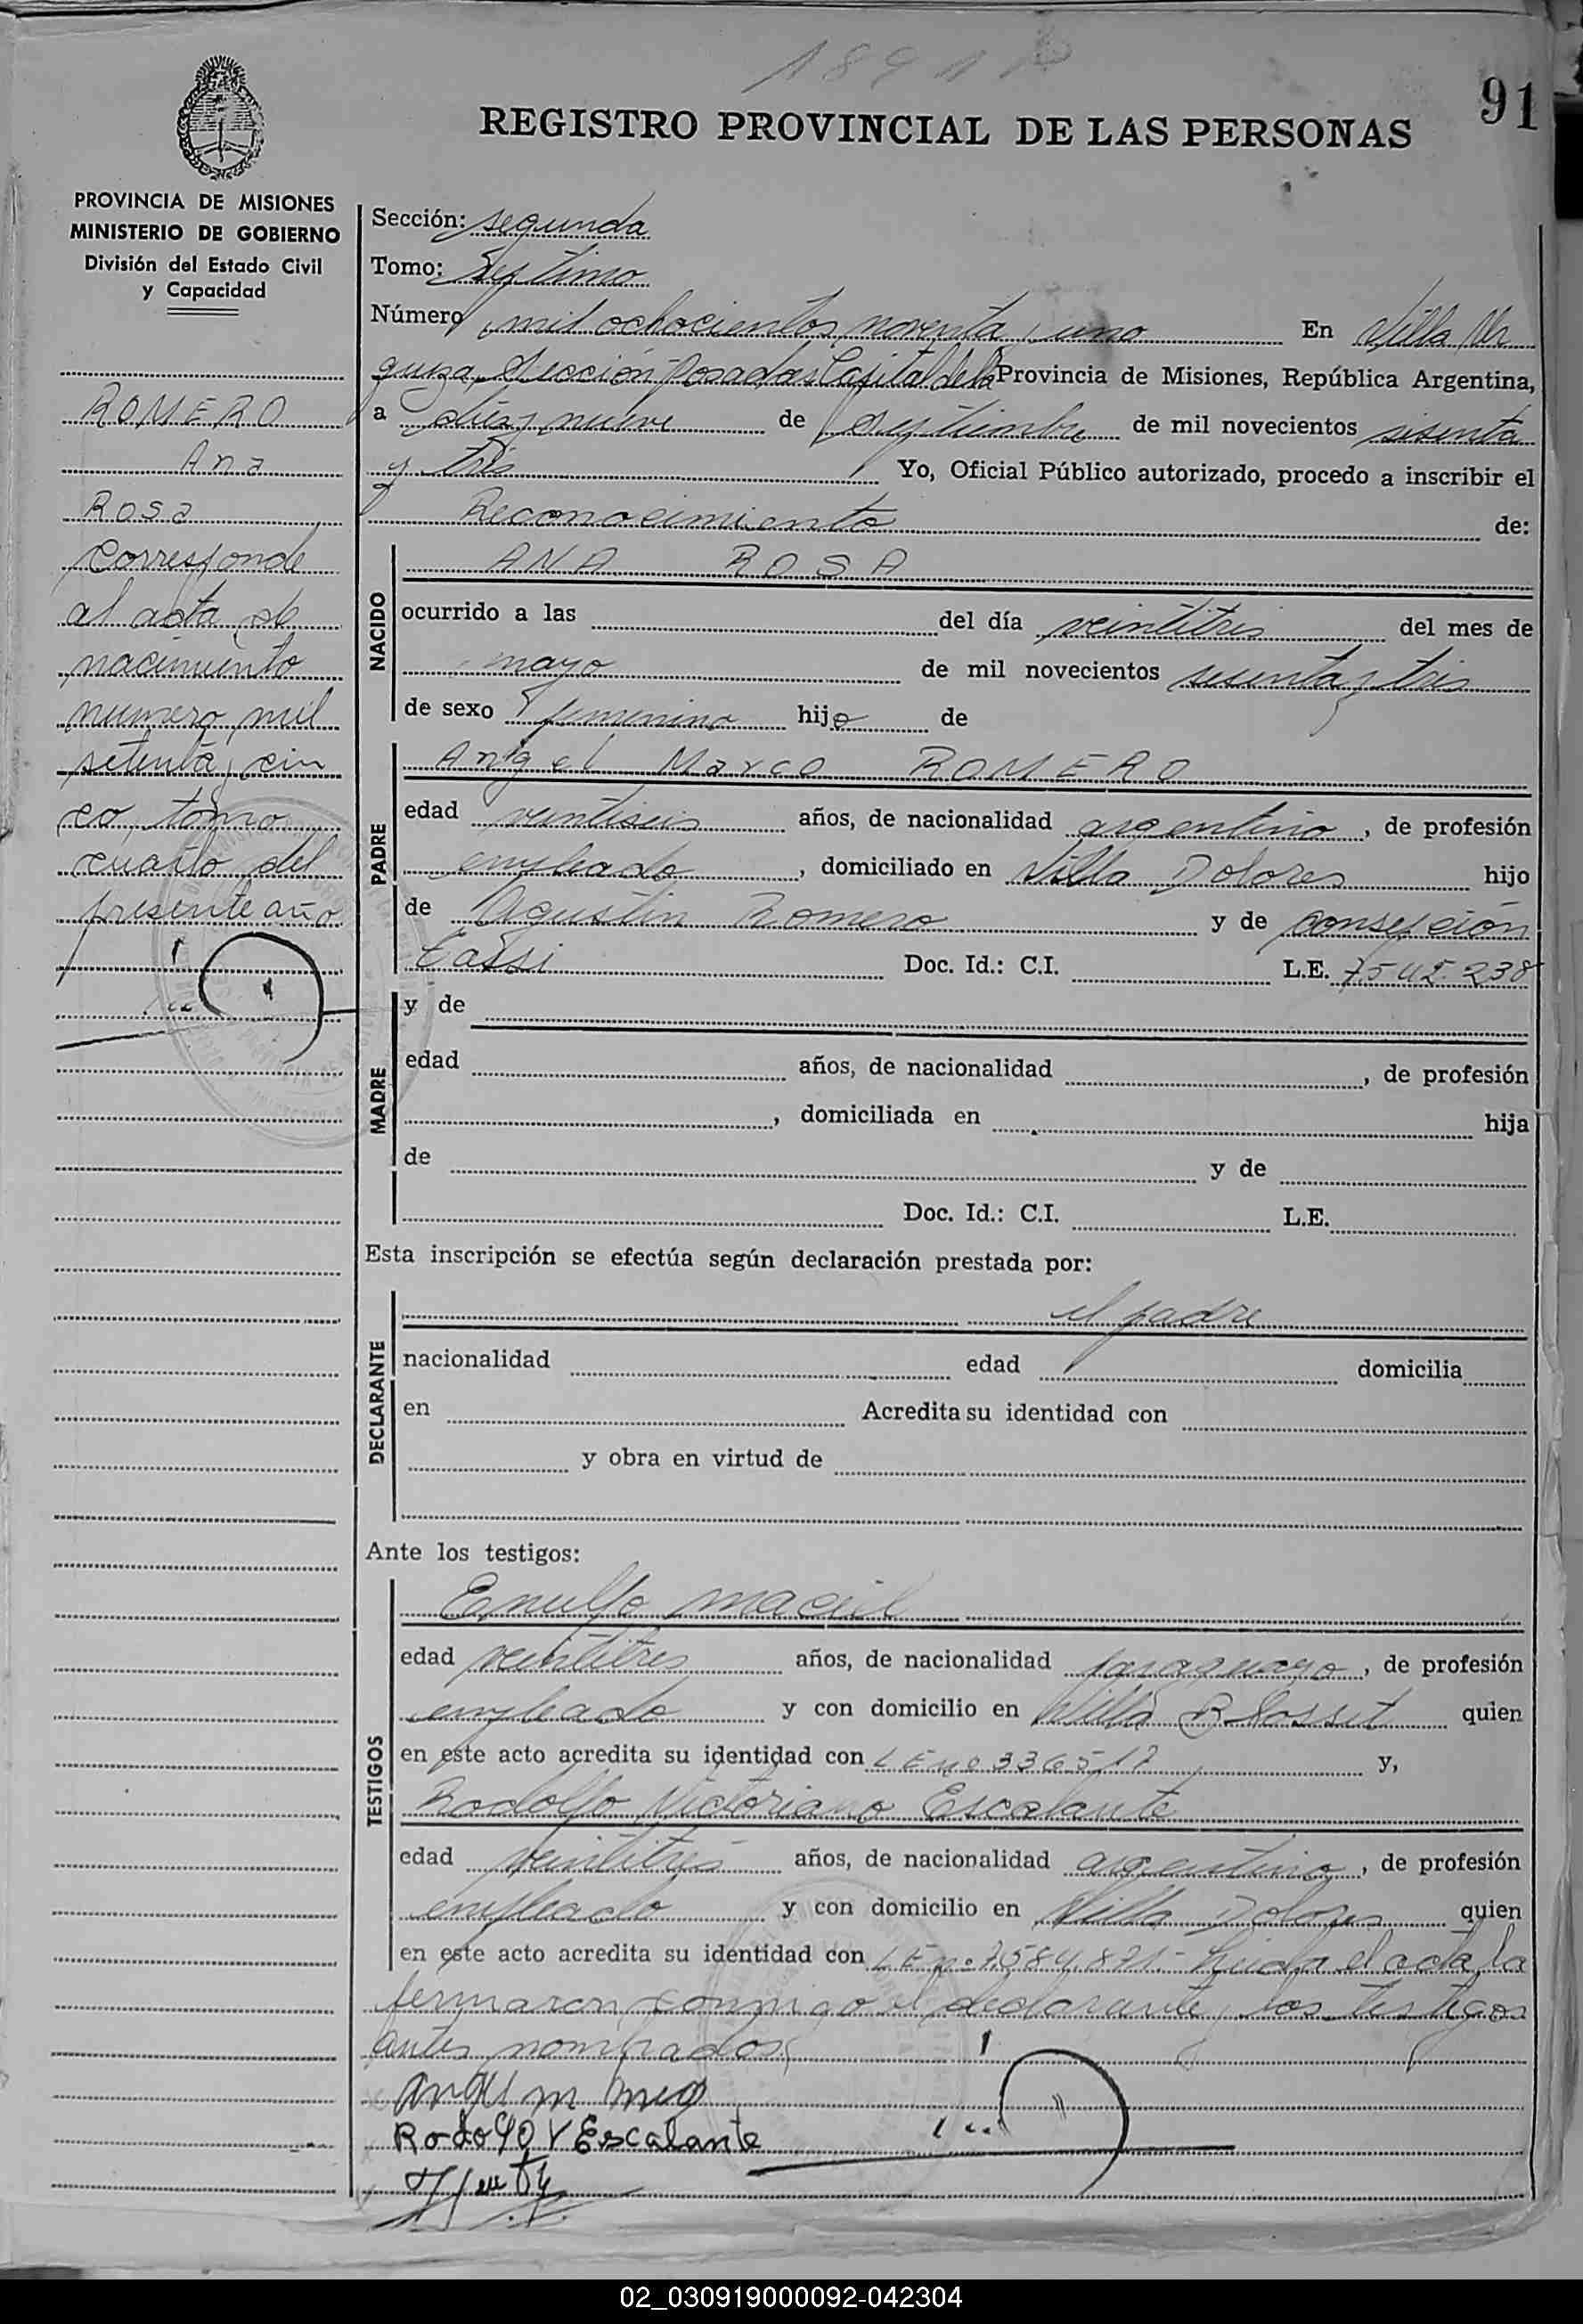 1891
91
REGISTRO PROVINCIAL DE LAS PERSONAS
PROVINCIA DE MISIONES
MINISTERIO DE GOBIERNO
División del Estado Civil
y Capacidad
ROMERO
Ana
Rosa
corresponde
al acta de
nacimiento
numero mil
setenta y cin
co, tomo
cuarto del
presente año
Sección: segunda
Tomo: Septimo
Número mil ochocientos noventa y uno En Villa Ur
quiza, Sección Posadas Capital de la Provincia de Misiones, República Argentina,
a diez y nueve de Septiembre de mil novecientos sesenta
y tres Yo, Oficial Público autorizado, procedo a inscribir el
Reconocimiento de:
NACIDO
ANA ROSA
ocurrido a las del día veintitres del mes de
mayo de mil novecientos sesenta y tres
de sexo femenino hijo de
PADRE
Angel Marco ROMERO
edad veintiseis años, de nacionalidad argentino, de profesión
empleado, domiciliado en Villa Dolores hijo
de Agustin Romero y de Consepción
Cassi Doc. Id.: C.I. L.E. 7.542.238
MADRE
y de
edad años, de nacionalidad , de profesión
, domiciliada en hija
de y de
Doc. Id.: C.I. L.E.
Esta inscripción se efectúa según declaración prestada por:
DECLARANTE
el padre
nacionalidad edad domicilia
en Acredita su identidad con
y obra en virtud de
Ante los testigos:
TESTIGOS
Enulfo Maciel
edad veintitres años, de nacionalidad paraguayo, de profesión
empleado y con domicilio en Villa Blosset quien
en este acto acredita su identidad con L E nº 336517 y,
Rodolfo Victoriano Escalante
edad veintitres años, de nacionalidad argentino, de profesión
empleado y con domicilio en Villa Dolores quien
en este acto acredita su identidad con L E nº 7.584.871.- Leida el acta la
firmaron conmigo el declarante y los testigos
antes nombrados
Rodolfo V Escalante
02_030919000092-042304